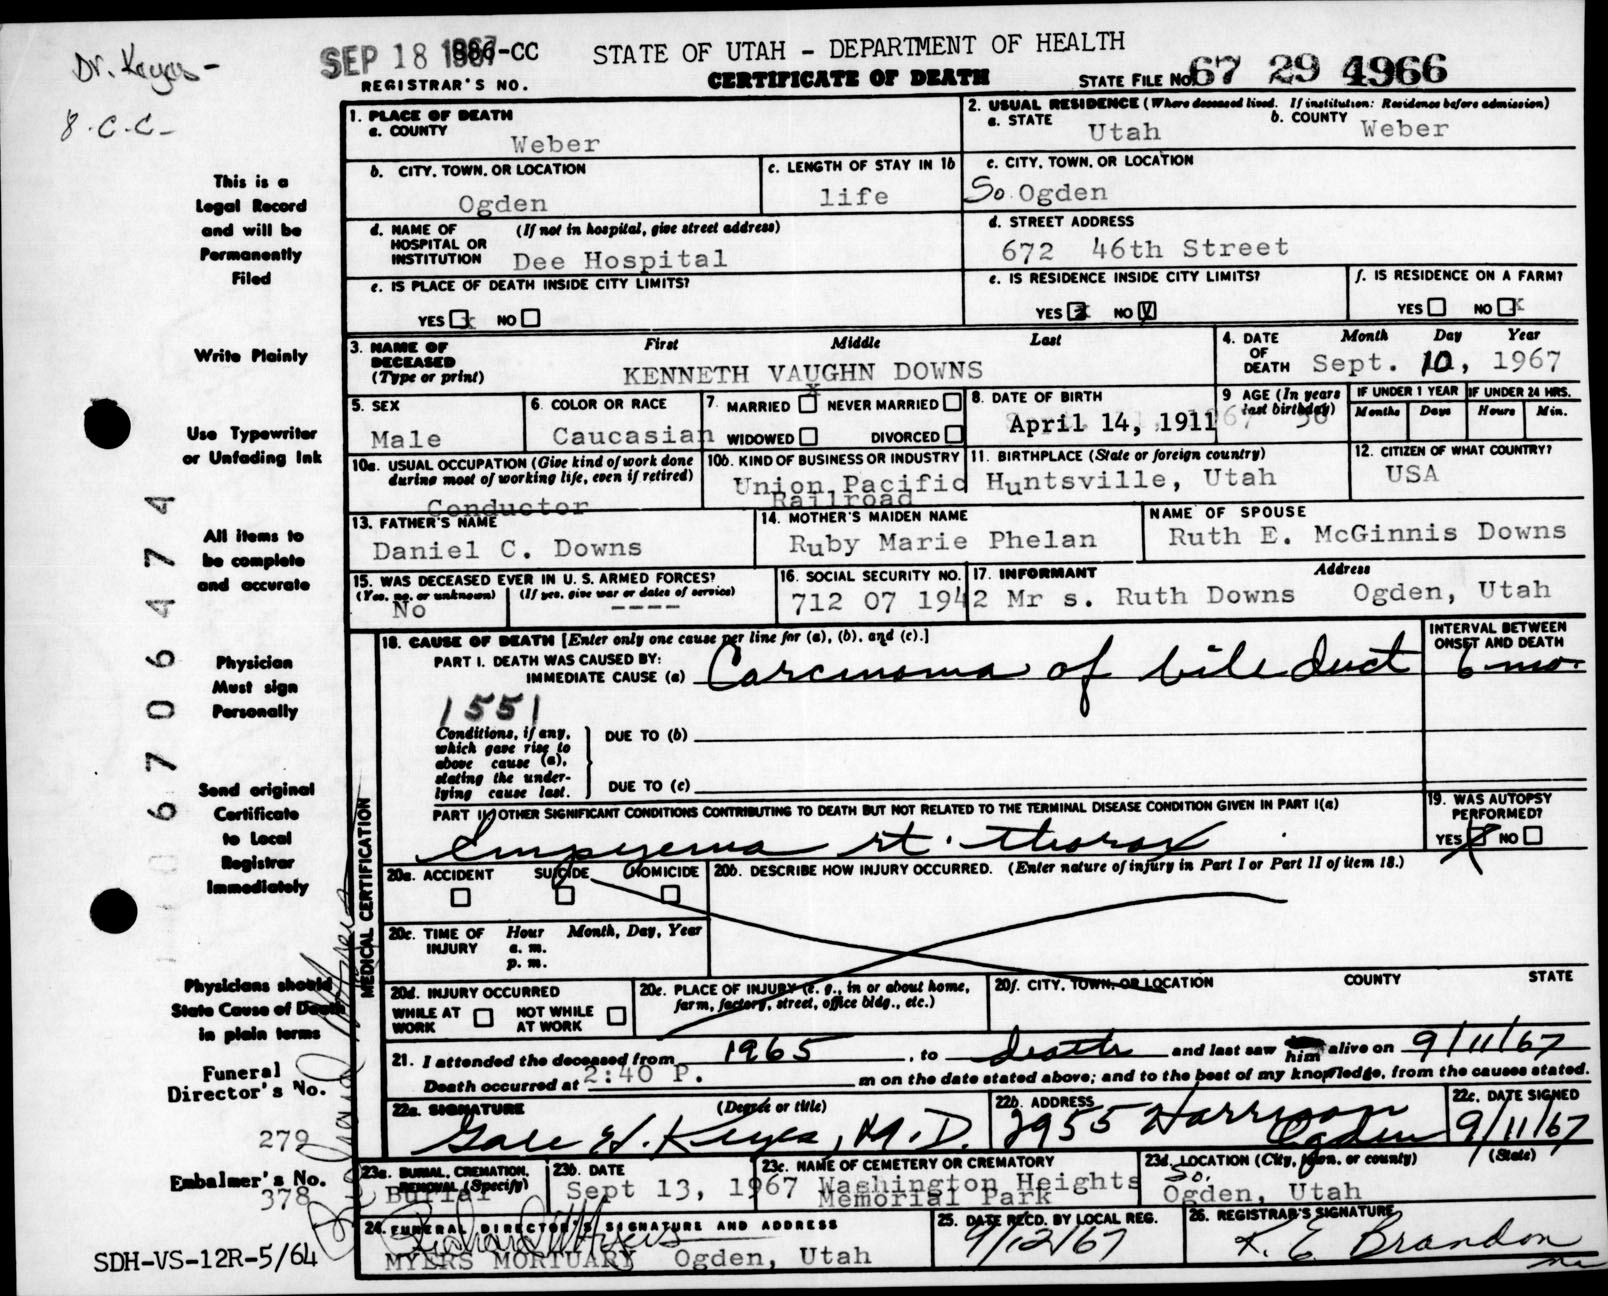 Dr. Keyes -
8. C. C -
SEP 18 1967
886-CC
REGISTRAR'S NO.
STATE OF UTAH - DEPARTMENT OF HEALTH
CERTIFICATE OF DEATH
STATE FILE No. 67 29 4966
1. PLACE OF DEATH
a. COUNTY
Weber
2. USUAL RESIDENCE (Where deceased lived. If institution: Residence before admission)
a. STATE Utah
b. COUNTY Weber
b. CITY, TOWN, OR LOCATION
Ogden
c. LENGTH OF STAY IN 1b
life
c. CITY, TOWN, OR LOCATION
So. Ogden
d. NAME OF HOSPITAL OR INSTITUTION (If not in hospital, give street address)
Dee Hospital
d. STREET ADDRESS
672 46th Street
e. IS PLACE OF DEATH INSIDE CITY LIMITS?
YES x NO
e. IS RESIDENCE INSIDE CITY LIMITS?
YES NO
f. IS RESIDENCE ON A FARM?
YES NO x
3. NAME OF DECEASED (Type or print)
First Middle Last
KENNETH VAUGHN DOWNS
4. DATE OF DEATH
Month Day Year
Sept. 10, 1967
5. SEX
Male
6. COLOR OR RACE
Caucasian
7. MARRIED x NEVER MARRIED
WIDOWED DIVORCED
8. DATE OF BIRTH
April 14, 1911
9 AGE (In years last birthday)
56
IF UNDER 1 YEAR
Months Days
IF UNDER 24 HRS.
Hours Min.
10a. USUAL OCCUPATION (Give kind of work done during most of working life, even if retired)
Conductor
10b. KIND OF BUSINESS OR INDUSTRY
Union Pacific
Railroad
11. BIRTHPLACE (State or foreign country)
Huntsville, Utah
12. CITIZEN OF WHAT COUNTRY?
USA
13. FATHER'S NAME
Daniel C. Downs
14. MOTHER'S MAIDEN NAME
Ruby Marie Phelan
NAME OF SPOUSE
Ruth E. McGinnis Downs
15. WAS DECEASED EVER IN U. S. ARMED FORCES?
(Yes, no, or unknown) (If yes, give war or dates of service)
No ----
16. SOCIAL SECURITY NO.
712 07 1942
17. INFORMANT Address
Mr s. Ruth Downs Ogden, Utah
18. CAUSE OF DEATH [Enter only one cause per line for (a), (b), and (c).]
INTERVAL BETWEEN ONSET AND DEATH
PART I. DEATH WAS CAUSED BY:
IMMEDIATE CAUSE (a) Carcinoma of bile duct 6 mo.
1551
Conditions, if any, which gave rise to above cause (a), stating the underlying cause last.
DUE TO (b)
DUE TO (c)
PART II. OTHER SIGNIFICANT CONDITIONS CONTRIBUTING TO DEATH BUT NOT RELATED TO THE TERMINAL DISEASE CONDITION GIVEN IN PART I(a)
Empyema rt. thorax
19. WAS AUTOPSY PERFORMED?
YES X NO
20a. ACCIDENT SUICIDE HOMICIDE
20b. DESCRIBE HOW INJURY OCCURRED. (Enter nature of injury in Part I or Part II of item 18.)
20c. TIME OF INJURY
Hour Month, Day, Year
a. m.
p. m.
20d. INJURY OCCURRED
WHILE AT WORK NOT WHILE AT WORK
20e. PLACE OF INJURY (e. g., in or about home, farm, factory, street, office bldg., etc.)
20f. CITY, TOWN, OR LOCATION COUNTY STATE
21. I attended the deceased from 1965, to death and last saw him alive on 9/11/67
Death occurred at 2:40 P. m on the date stated above; and to the best of my knowledge, from the causes stated.
22a. SIGNATURE (Degree or title)
Gale H. Keyes, M.D.
22b. ADDRESS
2955 Harrison
Ogden
22c. DATE SIGNED
9/11/67
23a. BURIAL, CREMATION, REMOVAL (Specify)
Burial
23b. DATE
Sept 13, 1967
23c. NAME OF CEMETERY OR CREMATORY
Washington Heights
Memorial Park
23d. LOCATION (City, town, or county) (State)
So. Ogden, Utah
24. FUNERAL DIRECTOR'S SIGNATURE AND ADDRESS
Richard Myers
MYERS MORTUARY Ogden, Utah
25. DATE RECD. BY LOCAL REG.
9/12/67
26. REGISTRAR'S SIGNATURE
K. E. Brandon
MEDICAL CERTIFICATION
This is a
Legal Record
and will be
Permanently
Filed
Write Plainly
Use Typewriter
or Unfading Ink
All items to
be complete
and accurate
Physician
Must sign
Personally
Send original
Certificate
to Local
Registrar
Immediately
Physicians should
State Cause of Death
in plain terms
Funeral
Director's No.
279
Embalmer's No.
378
SDH-VS-12R-5/64
06706474